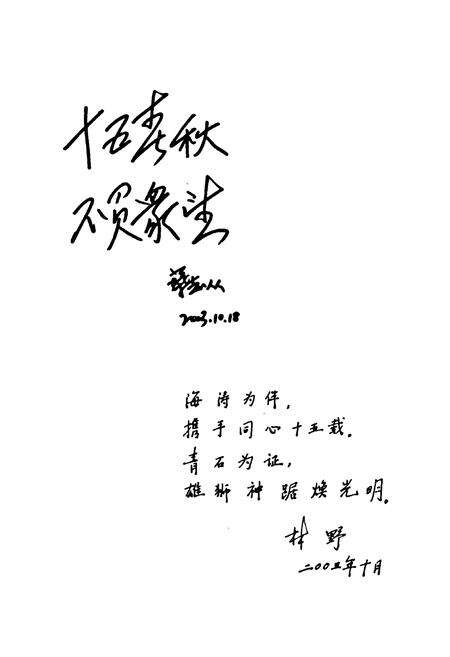 十五春秋
不负眾望
2003.10.18
海涛为伴,
携手同心十五载.
青石为证,
雄狮神踞焕光明.
林野
二00三年十月